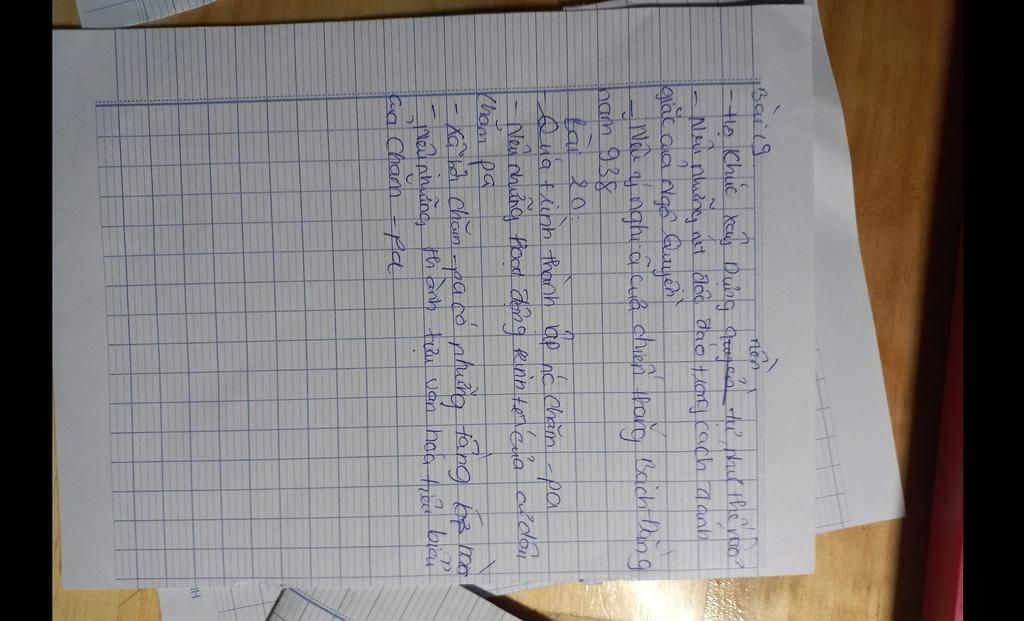 Bài 19
- Họ Khúc xây dựng quyền nền tự như thế nào?
- Nêu những nét độc đáo trong cách đánh
giặc của Ngô Quyền
- Nêu ý nghĩa của chiến thắng Bạch Đằng
năm 938
bài 20:
- Quá trình thành lập nc chăm-pa
- Nêu những hoạt động kinh tế của cư dân
Chăm pa
- Xã hội chăm-pa có những tầng lớp nào
- Nêu những thành tựu văn hoá tiêu biểu
của Chăm-pa